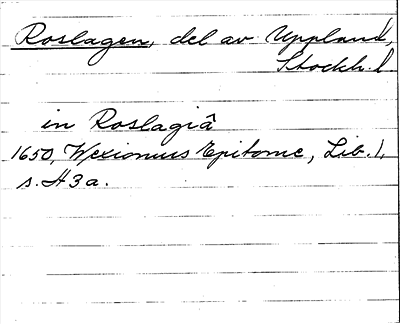 Roslagen, del av Uppland,
Stockh. l.
in Roslagiâ
1650, Wexionius Epitome, Lib. 1,
s. H 3 a.